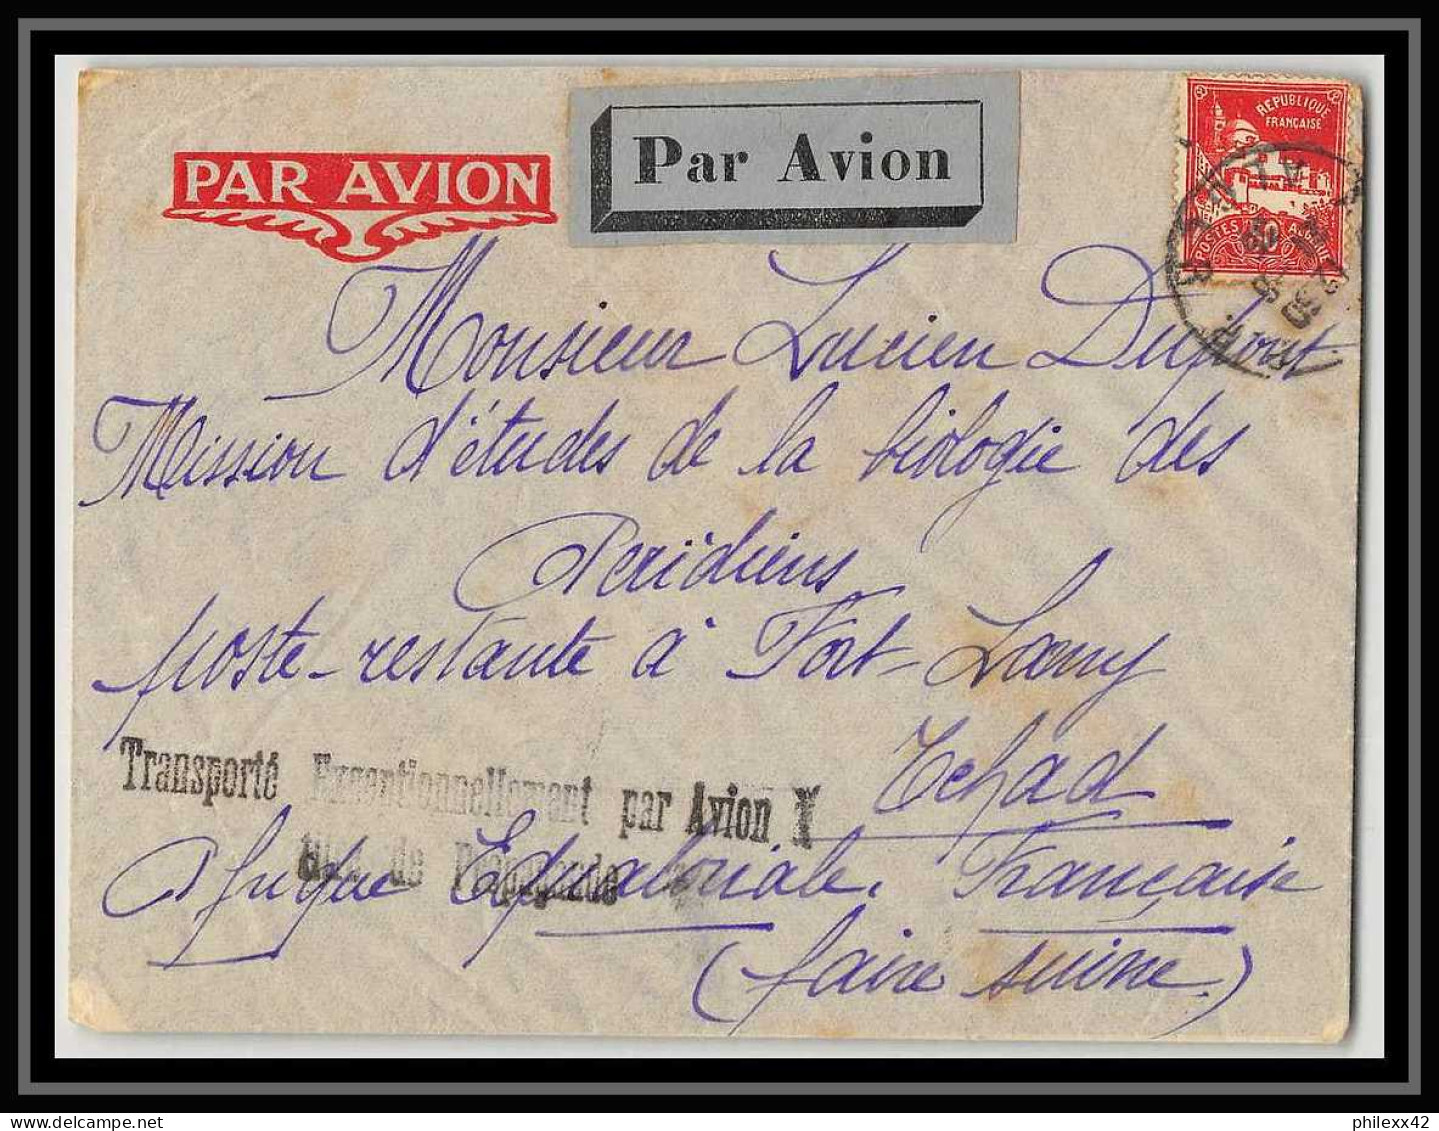 PAR AVION
Par Avion
REPUBLIQUE
FRANÇAISE
POSTES ALGERIE
50
Monsieur Lucien Duport
Mission d'études de la biologie des
Acridiens
poste-restante à Fort-Lamy
Tchad
Transporté Exceptionnellement par Avion
titre de Propagande
Afrique Equatoriale Française
(faire suivre)
philexx42